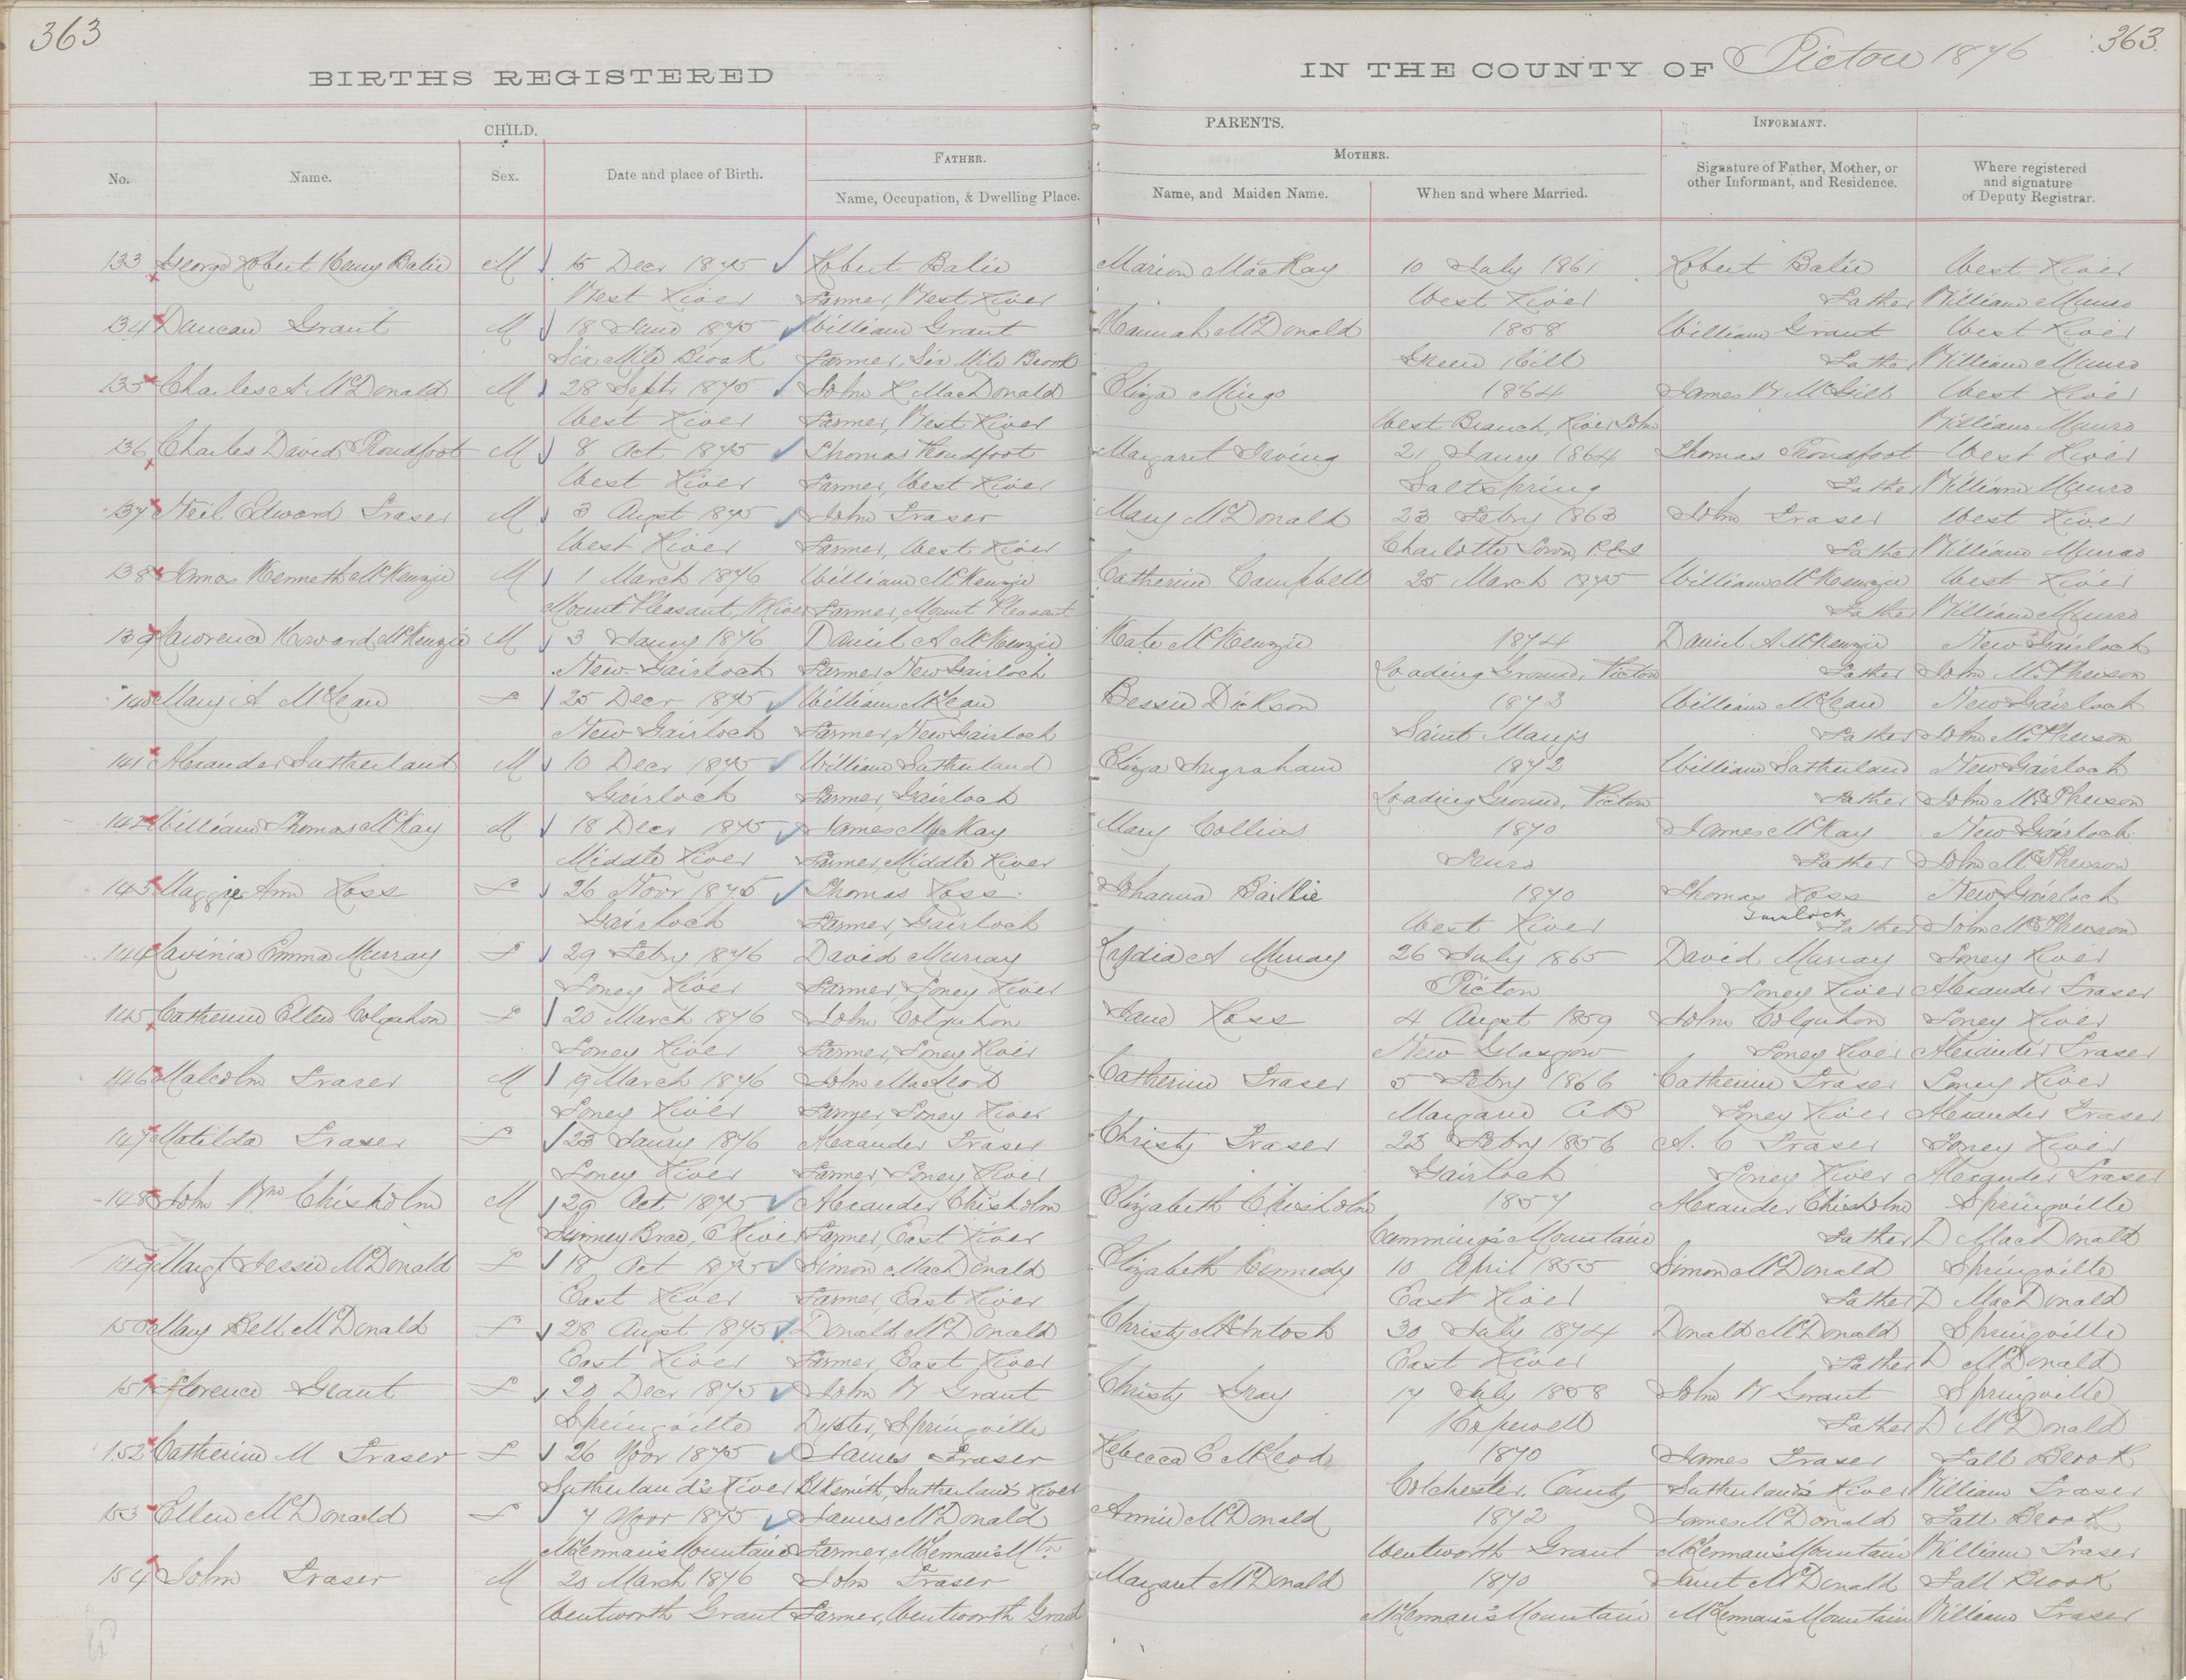 363
363.
BIRTHS REGISTERED IN THE COUNTY OF Pictou 1876
CHILD. PARENTS. INFORMANT.
No. Name. Sex. Date and place of Birth. FATHER. Name, Occupation, & Dwelling Place. MOTHER. Name, and Maiden Name. When and where Married. Signature of Father, Mother, or other Informant, and Residence. Where registered and signature of Deputy Registrar.
133 George Robert Henry Balie M 15 Decr 1875 Robert Balie Marion MacKay 10 July 1861 Robert Balie West River
West River Farmer, West River West River Father William Munro
134 Duncan Grant M 18 June 1875 William Grant Hannah McDonald 1858 William Grant West River
Six Mile Brook Farmer, Six Mile Brook Green Hill Father William Munro
135 Charles A McDonald M 28 Septr 1875 John R MacDonald Eliza Mingo 1864 James W McGill West River
West River Farmer, West River West Branch, River John William Munro
136 Charles David Proudfoot M 8 Oct 1875 Thomas Proudfoot Margaret Irving 21 Jany 1864 Thomas Proudfoot West River
West River Farmer, West River Saltspring Father William Munro
137 Neil Edward Fraser M 3 Augst 1875 John Fraser Mary McDonald 23 Febry 1863 John Fraser West River
West River Farmer, West River Charlotte Town P.E.I Father William Munro
138 James Kenneth McKenzie M 1 March 1876 William McKenzie Catherine Campbell 25 March 1875 William McKenzie West River
Mount Pleasant, WRiver Farmer, Mount Pleasant Father William Munro
139 Lawrence Howard McKenzie M 3 Janny 1876 Daniel A McKenzie Kate McKenzie 1874 Daniel A McKenzie New Gairloch
New Gairloch Farmer, New Gairloch Loading Ground, Pictou Father John McPherson
140 Mary A McLean F 25 Decr 1875 William McLean Bessie Dickson 1873 William McLean New Gairloch
New Gairloch Farmer, New Gairloch Saint Marys Father John McPherson
141 Alexander Sutherland M 10 Decr 1875 William Sutherland Eliza Ingraham 1872 William Sutherland New Gairloch
Gairloch Farmer, Gairloch Loading Ground, Pictou Father John McPherson
142 William Thomas McKay M 18 Decr 1875 James McKay Mary Collins 1870 James McKay New Gairloch
Middle River Farmer, Middle River Truro Father John McPherson
143 Maggie Ann Ross F 26 Novr 1875 Thomas Ross Johanna Baillie 1870 Thomas Ross New Gairloch
Gairloch Farmer, Gairloch West River Gairloch Father John McPherson
144 Lavinia Emma Murray F 29 Febry 1876 David Murray Lydia A Murray 26 July 1865 David Murray Toney River
Toney River Farmer, Toney River Pictou Toney River Alexander Fraser
145 Catherine Ellen Colquhon F 20 March 1876 John Colquhon Jane Ross 4 Augst 1859 John Colquhon Toney River
Toney River Farmer, Toney River New Glasgow Toney River Alexander Fraser
146 Malcolm Fraser M 19 March 1876 John MacLeod Catherine Fraser 5 Febry 1866 Catherine Fraser Toney River
Toney River Farmer, Toney River CB Toney River Alexander Fraser
147 Matilda Fraser F 23 Janry 1876 Alexander Fraser Christy Fraser 23 Febry 1856 A. C Fraser Toney River
Toney River Farmer, Toney River Gairloch Toney River Alexander Fraser
148 John Wm Chisholm M 29 Oct 1875 Alexander Chisholm Elizabeth Chisholm 1857 Alexander Chisholm Springville
Sunney Brae, E River Farmer, East River Cumming's Mountain Father D MacDonald
149 Margt Jessie McDonald F 18 Oct 1875 Simon MacDonald Elizabeth Kennedy 10 April 1855 Simon McDonald Springville
East River Farmer, East River East River Father D MacDonald
150 Mary Bell McDonald F 28 Augst 1875 Donald McDonald Christy McIntosh 30 July 1874 Donald McDonald Springville
East River Farmer, East River East River Father D McDonald
151 Florence Grant F 20 Decr 1875 John W Grant Christy Gray 17 July 1858 John W Grant Springville
Springville Dyster, Springville Hopewell Father D McDonald
152 Catherine M Fraser F 26 Novr 1875 James Fraser Rebecca E McLeod 1870 James Fraser Fall Brook
Sutherland's River Blksmith, Sutherlands River Colchester County Sutherlands River William Fraser
153 Ellen McDonald F 7 Novr 1875 James McDonald Annie McDonald 1872 James McDonald Fall Brook
McLennan's Mountain Farmer, McLennan's Mtn Wentworth Grant McLennan's Mountain William Fraser
154 John Fraser M 20 March 1876 John Fraser Margaret McDonald 1870 Janet McDonald Fall Brook
Wentworth Grant Farmer, Wentworth Grant McLennan's Mountain McLennan's Mountain William Fraser